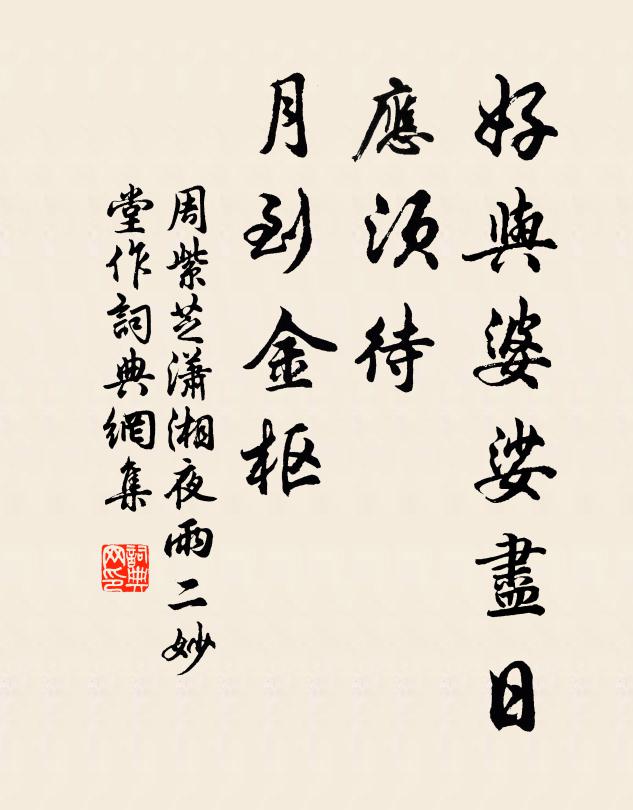 好與婆娑盡日
應須待
月到金枢
周紫芝瀟湘夜雨二妙
堂作詞典網集
詞典網印